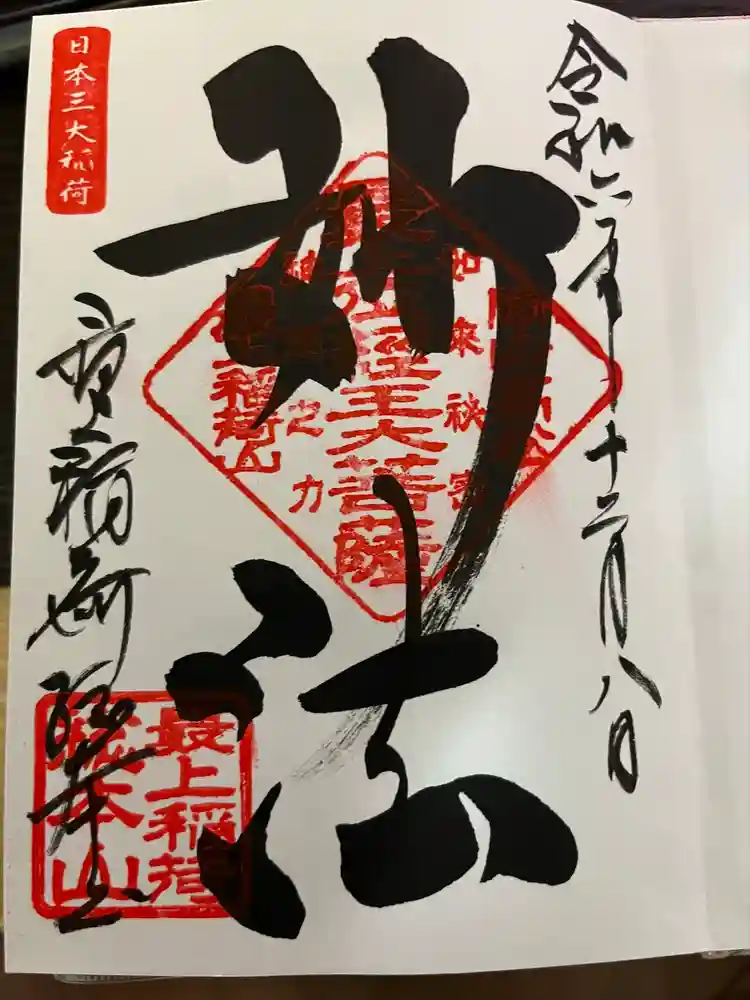 令和六年十二月八日
妙法
如来秘密
最上位経王大菩薩
神通之力
稲荷山
日本三大稲荷
最上稲荷総本山
最上稲荷
總本山